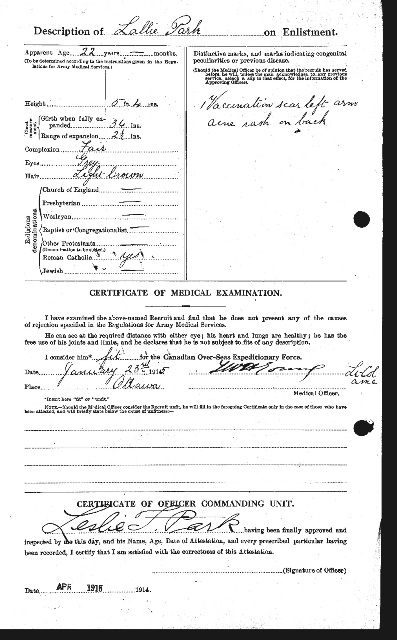 Description of Lallie Park on Enlistment.
Apparent Age 22 years — months.
(To be determined according to the instructions given in the Regulations for Army Medical Services.)
Distinctive marks, and marks indicating congenital
peculiarities or previous disease.
(Should the Medical Officer be of opinion that the recruit has served
Height 5 ft. 4 ins.
Chest measurement
Girth when fully expanded 34 ins.
Range of expansion 2½ ins.
Complexion Fair
Eyes Grey
Hair Light brown
1 Vaccination scar left arm
acne rash on back
Religious denominations
Church of England —
Presbyterian —
Wesleyan —
Baptist or Congregationalist —
Other Protestants —
(Denomination to be stated.)
Roman Catholic yes
Jewish —
CERTIFICATE OF MEDICAL EXAMINATION.
I have examined the above-named Recruit and find that he does not present any of the causes
of rejection specified in the Regulations for Army Medical Services.
He can see at the required distance with either eye; his heart and lungs are healthy; he has the
free use of his joints and limbs, and he declares that he is not subject to fits of any description.
I consider him* fit for the Canadian Over-Seas Expeditionary Force.
Date January 23rd 1915
Place Ottawa
Medical Officer.
*Insert here "fit" or "unfit."
NOTE.—Should the Medical Officer consider the Recruit unfit, he will fill in the foregoing Certificate only in the case of those who have
been attested, and will briefly state below the cause of unfitness:—
CERTIFICATE OF OFFICER COMMANDING UNIT.
Leslie T. Park having been finally approved and
inspected by me this day, and his Name, Age, Date of Attestation, and every prescribed particular having
been recorded, I certify that I am satisfied with the correctness of this Attestation.
(Signature of Officer)
Date APR 1915 1914.